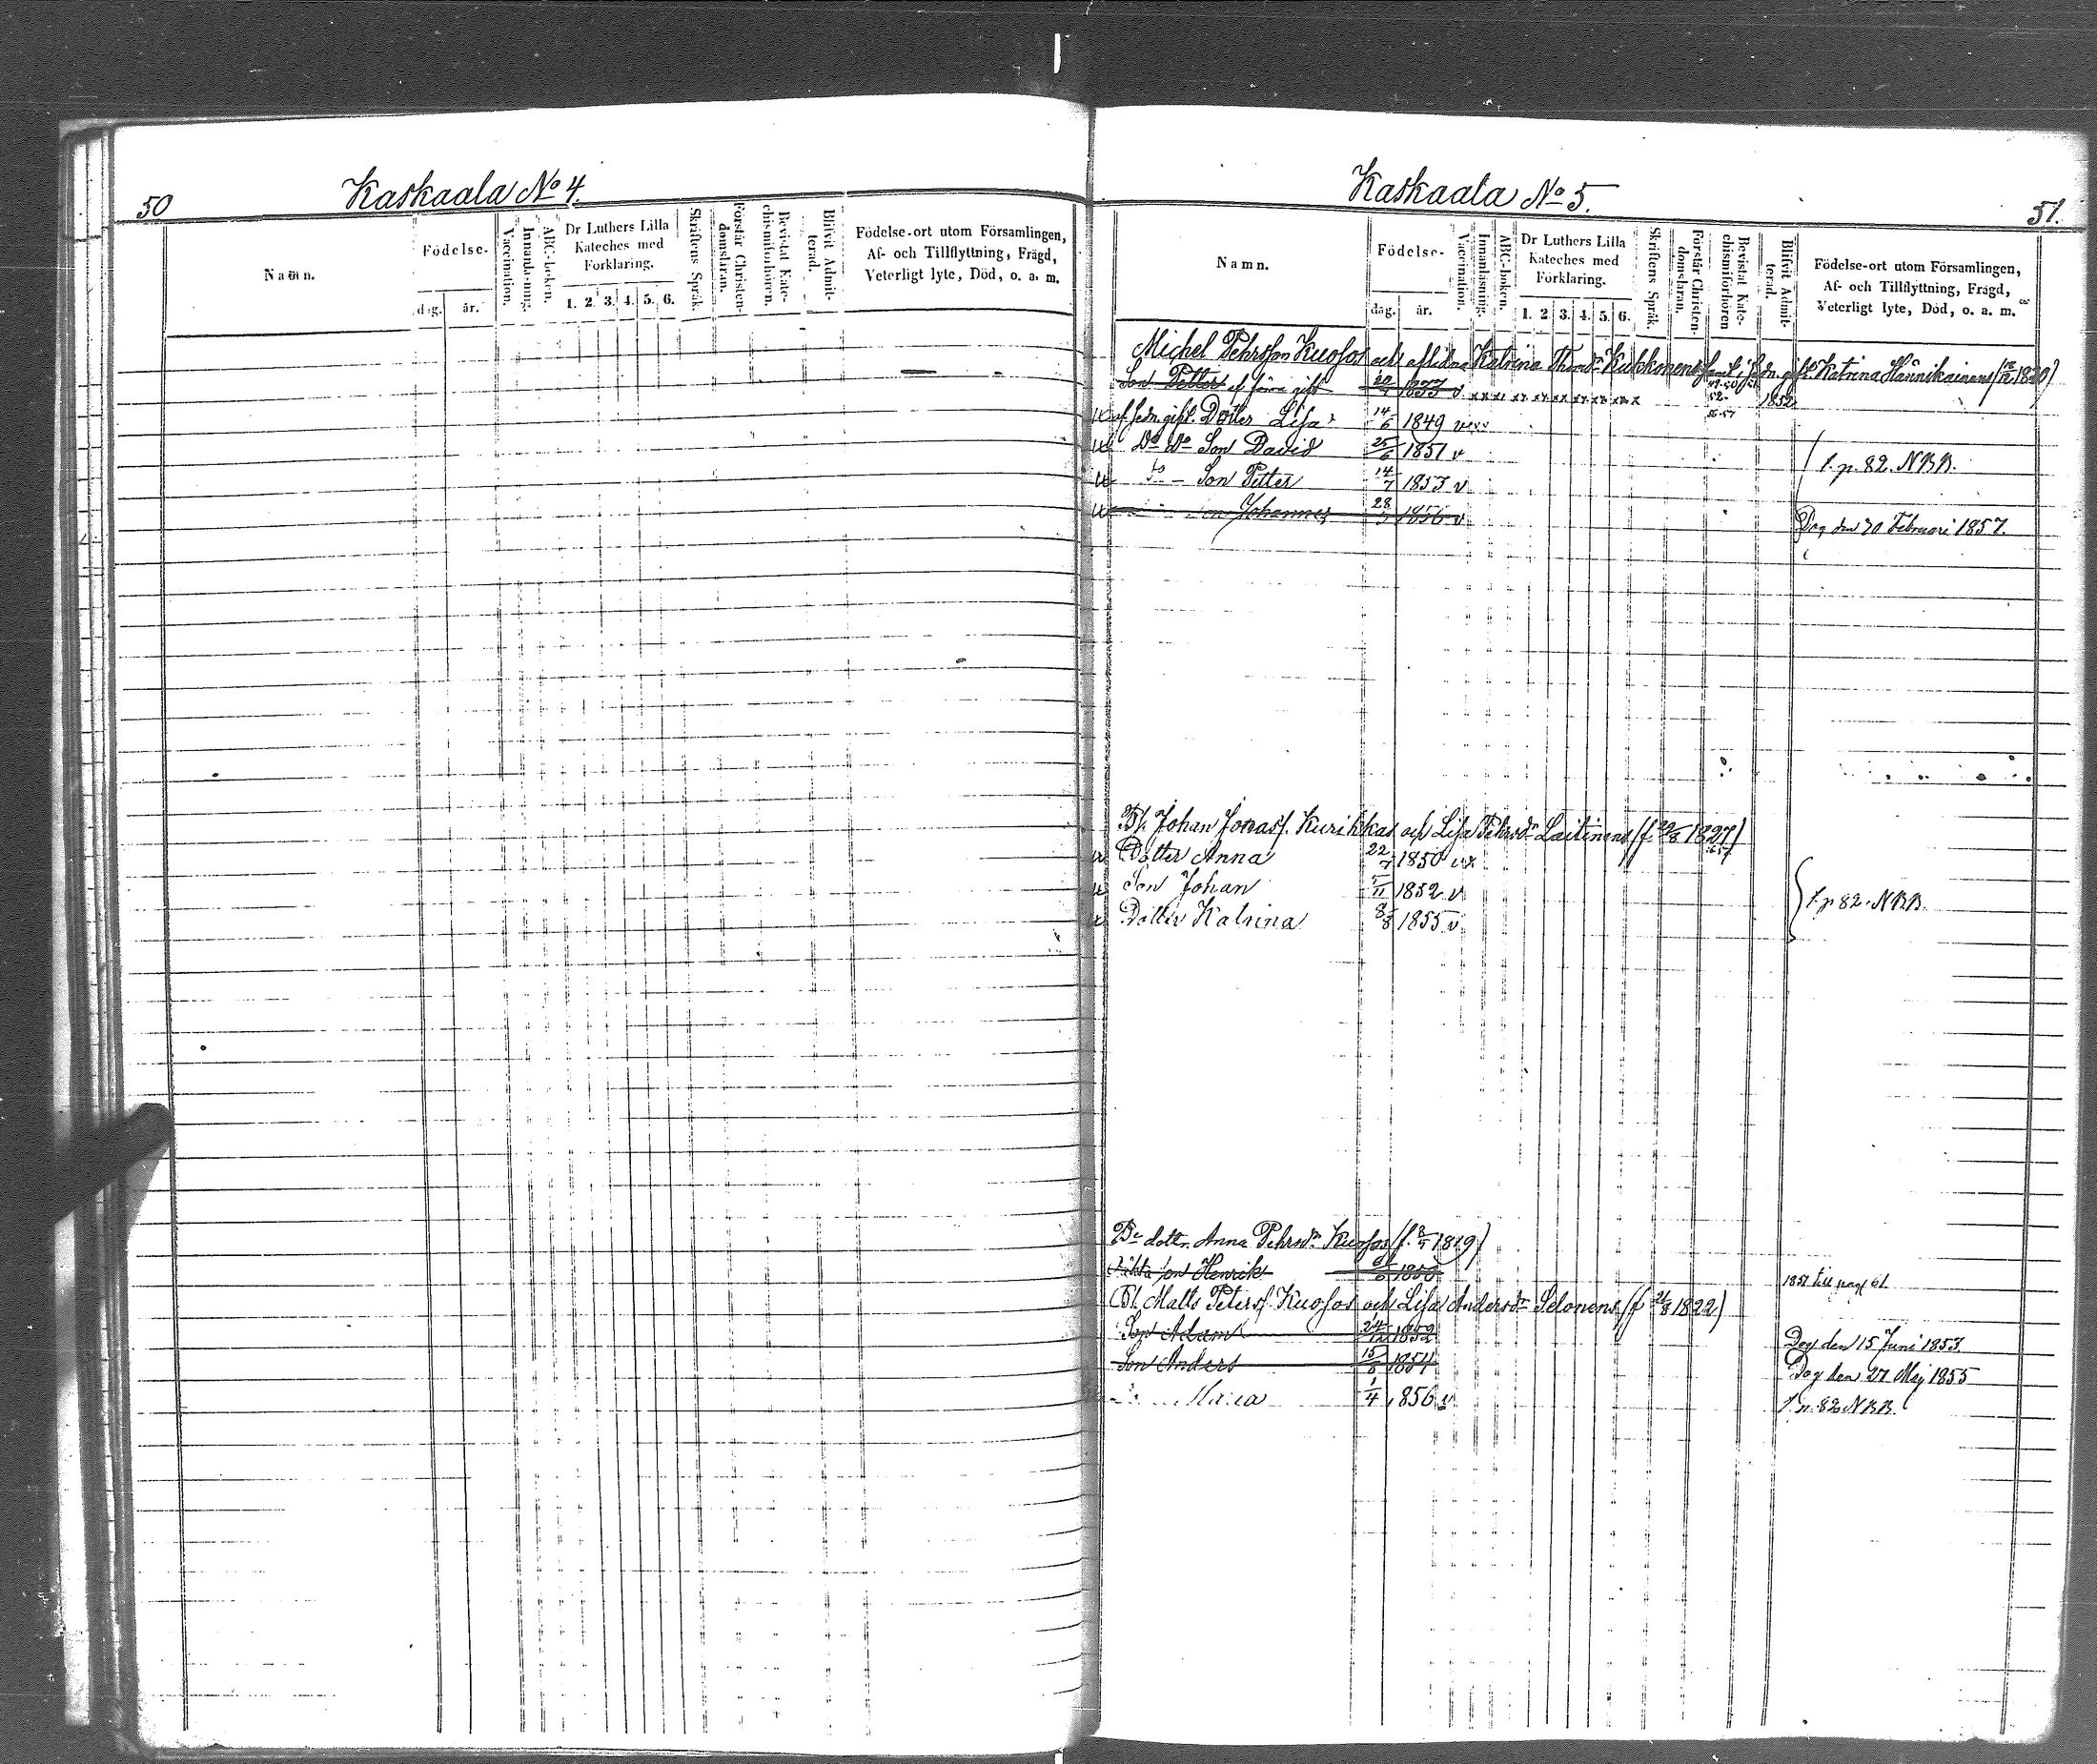 50
Kaskaala No 4.
Namn.
Födelse-
dag. år.
Vaccination.
Innanläsning.
ABC-boken.
Dr Luthers Lilla
Kateches med
Förklaring.
1. 2. 3. 4. 5. 6.
Skriftens Språk.
Förstår Christen-
domsläran.
Bevistat Kate-
chismiförhören.
Blifvit Admit-
terad.
Födelse-ort utom Församlingen,
Af- och Tillflyttning, Frägd,
Veterligt lyte, Död, o. a. m.
Kaskaala No 5.
51.
Namn.
Födelse-
dag. år.
Vaccination.
Innanläsning.
ABC-boken.
Dr Luthers Lilla
Kateches med
Förklaring.
1. 2. 3. 4. 5. 6.
Skriftens Språk.
Förstår Christen-
domsläran.
Bevistat Kate-
chismiförhören
Blifvit Admit-
terad.
Födelse-ort utom Församlingen,
Af- och Tillflyttning, Frägd,
Veterligt lyte, Död, o. a. m.
Michel Pehrsson Kuosos och aflidna Katrina Kukkonens Katrina Hännikainens 1820)
Son Petter af förra gift 1833 v 1852
af sedn. gift. Dotter Lisa 14/6 1849
Do Do Son David 25/6 1851 v
Son Petter 14/7 1853 v f. p. 82. NBB.
Johannes 28 1856 v Dog den 20 Februari 1857.
Bl. Johan Jonass. Kurikkas och Lisa Pehrsdr Laitinens (f. 1827)
Dotter Anna 22/7 1850 v x
Son Johan 5/11 1852 v
Dotter Katrina 8/8 1855 v f. p 82. NBB.
Be dottr. Anna Pehrsdr Kuosos (f. 1819)
son Henrik 1850 1851 till pag 61.
Bl. Matts Peterss. Kuosos och Lisa Andersdr Selonens (f 21/8 1822)
Son Adam 24/12 1852 Dog den 15 Juni 1853.
Son Anders 15/8 1854 Dog den 27 Maj 1855
Maria 1/4 1856 v f. p. 82 NBB.